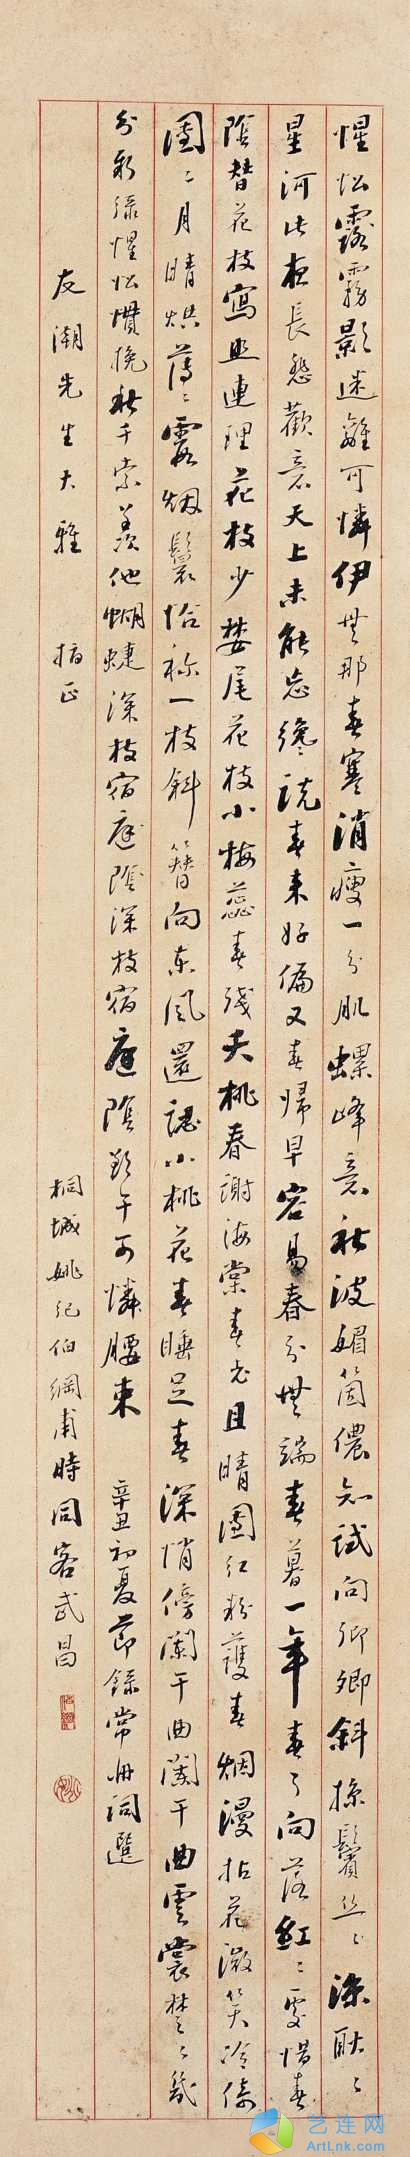 惺忪露霧影迷離可憐伊無那春寒消瘦一分肌螺峰意秋波媚箇儂知試向卿卿斜掠鬢絲絲深耽耽
星河此夜長愁歡意天上未能忘纔說春來好偏又春歸早容易春分無端春暮一年春了向落紅紅處惜春
陰替花枝寫照連理花枝少婪尾花枝小梅蕊春殘夭桃春謝海棠春老且晴圍紅粉護春烟漫拈花微笑冷倚
圍圍月晴烘薄薄霞烟鬟恰稱一枝斜簪向東風還認小桃花春睡足春深悄傍闌干曲闌干曲雲裳楚楚幾
分新綠惺忪慣挽秋千索羨他蝴蝶深枝宿庭陰深枝宿庭陰欲午可憐腰束 辛丑初夏節錄常冊詞選
友潮先生大雅 指正 桐城姚紀伯綱甫時同客武昌
艺连网
ArtLnk.com